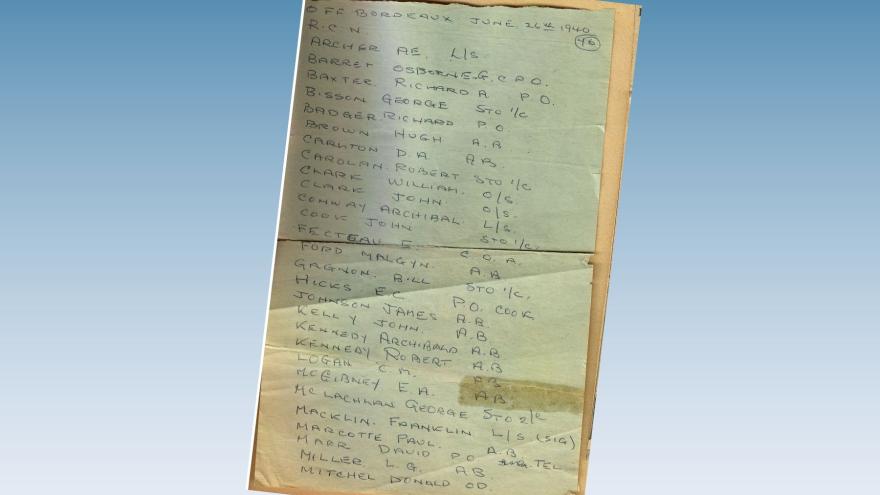 OFF BORDEAUX JUNE 26th 1940
R.C.N 45
ARCHER AE. L/S
BARRET OSBORNE.G. C.P.O.
BAXTER RICHARD A P.O.
BISSON GEORGE STO 1/C
BADGER. RICHARD P.O
BROWN HUGH A.B
CARLTON D.A. AB.
CAROLAN. ROBERT STO 1/C
CLARK WILLIAM. O/S.
CLARK JOHN O/S.
CONWAY ARCHIBAL. L/S.
COOK JOHN STO 1/C.
FECTEAU E. C.O.A.
FORD MALGYN. A.B
GAGNON. BILL STO 1/C.
HICKS E.C P.O. COOK
JOHNSON JAMES A.B.
KELLY JOHN. A.B.
KENNEDY ARCHIBALD A.B
KENNEDY ROBERT A.B
LOGAN C.M. AB
McGIBNEY E.A. AB.
McLACHLAN GEORGE STO 2/C
MACKLIN. FRANKLIN L/S (SIG)
MARCOTTE PAUL. A.B
MARR DAVID P.O TEL
MILLER L.G. AB
MITCHEL DONALD OD.